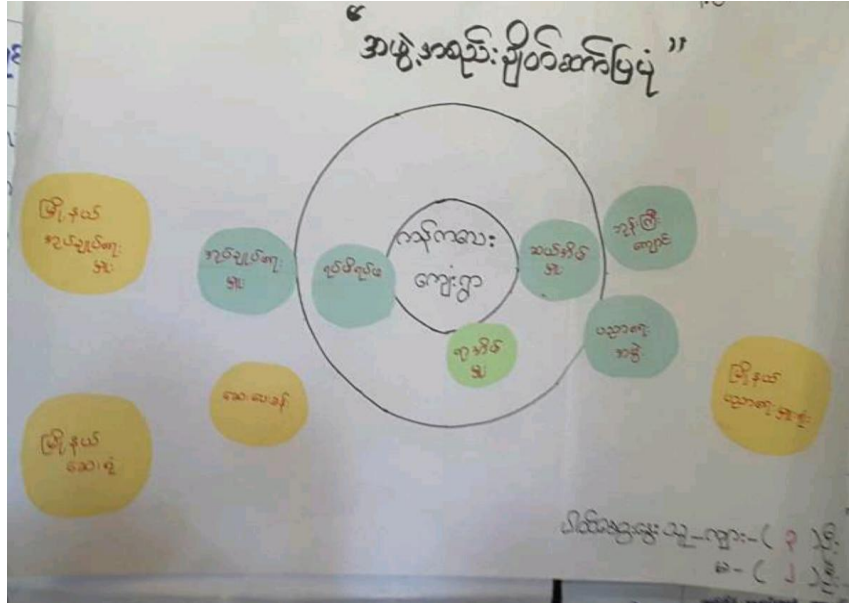 "အဖွဲ့အစည်းချိတ်ဆက်ပြပုံ"
မြို့နယ်
အုပ်ချုပ်ရေး
မှူး
အုပ်ချုပ်ရေး
မှူး
ရပ်မိရပ်ဖ
ကန်ကလေး
ကျေးရွာ
ဆယ်အိမ်
မှူး
ဘုန်းကြီး
ကျောင်း
ရာအိမ်
မှူး
ပညာရေး
အဖွဲ့
ဆေးပေးခန်း
မြို့နယ်
ဆေးရုံ
မြို့နယ်
ပညာရေးမှူးရုံး
ပါဝင်ဆွေးနွေးသူ-ကျား-( ၃ )ဦး
မ-( ၂ )ဦး